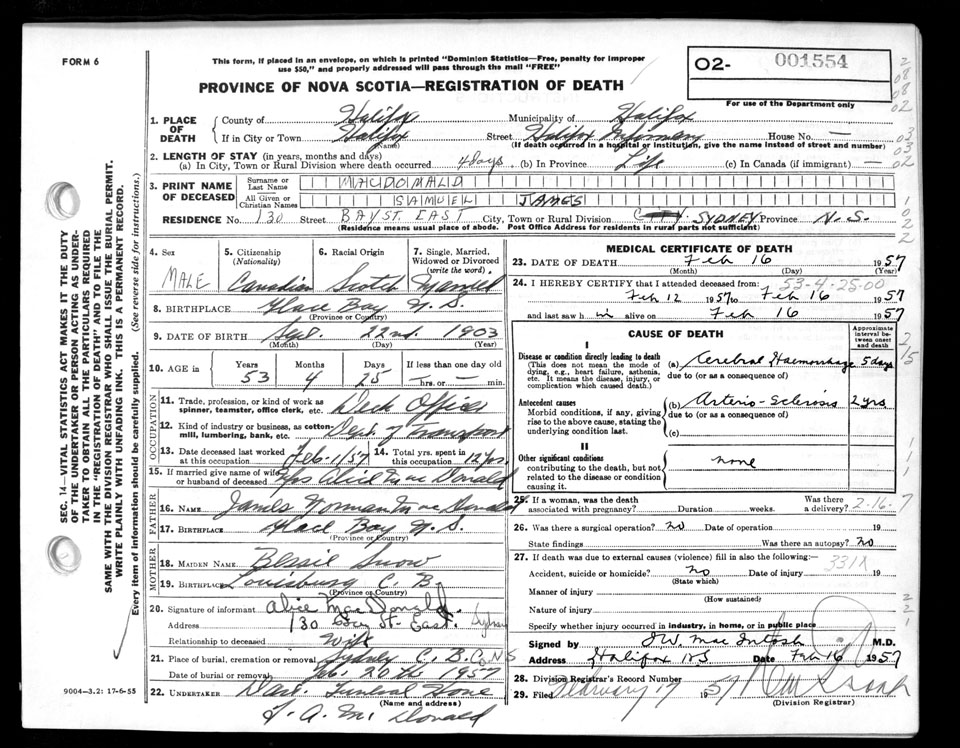 FORM 6
This form, if placed in an envelope, on which is printed "Dominion Statistics—Free, penalty for improper
use $50," and properly addressed will pass through the mail "FREE"
O2- 001554
For use of the Department only
PROVINCE OF NOVA SCOTIA—REGISTRATION OF DEATH
1. PLACE OF DEATH
County of Halifax Municipality of Halifax
If in City or Town Halifax Street Halifax Infirmary House No. —
(Name) (If death occurred in a hospital or institution, give the name instead of street and number)
2. LENGTH OF STAY (in years, months and days)
(a) In City, Town or Rural Division where death occurred 4 days. (b) In Province Life (c) In Canada (if immigrant) —
3. PRINT NAME OF DECEASED
Surname or Last Name MACDONALD
All Given or Christian Names SAMUEL JAMES
RESIDENCE No. 130 Street BAY ST. EAST City, Town or Rural Division SYDNEY Province N.S.
(Residence means usual place of abode. Post Office Address for residents in rural parts not sufficient)
4. Sex MALE
5. Citizenship (Nationality) Canadian
6. Racial Origin Scotch
7. Single, Married, Widowed or Divorced (write the word). Married
8. BIRTHPLACE Glace Bay N.S.
(Province or Country)
9. DATE OF BIRTH Sept. 22nd 1903
(Month) (Day) (Year)
10. AGE in Years 53 Months 4 Days 25 If less than one day old — hrs. or — min.
OCCUPATION
11. Trade, profession, or kind of work as spinner, teamster, office clerk, etc. Deck Officer
12. Kind of industry or business, as cotton-mill, lumbering, bank, etc. Dept. of Transport
13. Date deceased last worked at this occupation Feb-1/57 14. Total yrs. spent in this occupation 12 yrs.
15. If married give name of wife or husband of deceased Mrs Alice Mac Donald
FATHER
16. NAME James Norman Mac Donald
17. BIRTHPLACE Glace Bay N.S.
(Province or Country)
MOTHER
18. MAIDEN NAME Bessie Snow
19. BIRTHPLACE Louisburg C.B.
(Province or Country)
20. Signature of informant Alice MacDonald.
Address 130 Bay St- East. Sydney
Relationship to deceased Wife
21. Place of burial, cremation or removal Sydney C.B. Co NS
Date of burial or removal Feb. 20th 1957
22. UNDERTAKER Dart. Funeral Home
(Name and address)
MEDICAL CERTIFICATE OF DEATH
23. DATE OF DEATH Feb 16 1957
(Month) (Day) (Year)
53-4-25-00
24. I HEREBY CERTIFY that I attended deceased from:
Feb 12 1957 to Feb 16 1957
and last saw h im alive on Feb 16 1957
CAUSE OF DEATH
Approximate interval between onset and death
I
Disease or condition directly leading to death
(This does not mean the mode of dying, e.g., heart failure, asthenia, etc. It means the disease, injury, or complication which caused death.)
(a) Cerebral Haemorrhage 5 days
due to (or as a consequence of)
Antecedent causes
Morbid conditions, if any, giving rise to the above cause, stating the underlying condition last.
(b) Arterio-Sclerosis 2 yrs
due to (or as a consequence of)
(c)
II
Other significant conditions
contributing to the death, but not related to the disease or condition causing it.
none
25. If a woman, was the death associated with pregnancy? Duration weeks. Was there a delivery? 2-16-7
26. Was there a surgical operation? no Date of operation 19
State findings Was there an autopsy? no
27. If death was due to external causes (violence) fill in also the following:—
331X
Accident, suicide or homicide? no Date of injury 19
(State which)
Manner of injury
(How sustained)
Nature of injury
Specify whether injury occurred in industry, in home, or in public place
Signed by J W. Mac Intosh M.D.
Address Halifax NS Date Feb 16 1957
28. Division Registrar's Record Number
29. Filed February 17 1957
(Division Registrar)
SEC. 14—VITAL STATISTICS ACT MAKES IT THE DUTY
OF THE UNDERTAKER OR PERSON ACTING AS UNDER-
TAKER TO OBTAIN ALL THE PARTICULARS REQUIRED
IN THE "REGISTRATION OF DEATH" AND TO FILE THE
SAME WITH THE DIVISION REGISTRAR WHO SHALL ISSUE THE BURIAL PERMIT.
WRITE PLAINLY WITH UNFADING INK. THIS IS A PERMANENT RECORD.
Every item of information should be carefully supplied. (See reverse side for instructions.)
9004-3.2: 17-6-55